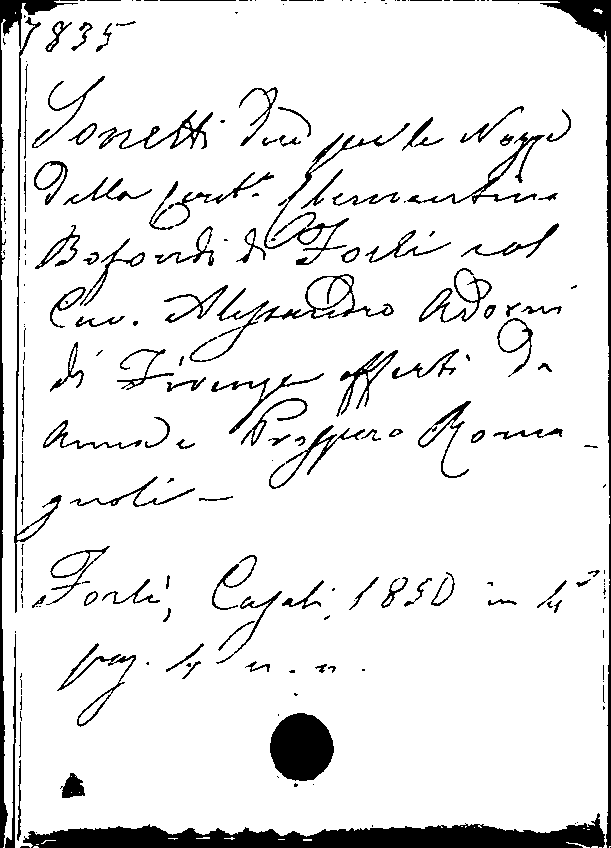 7835
Sonetti due per le Nozze
della Cont.ª Clementina
Bofondi di Forlì col
Cav. Alessandro Adorni
di Firenze offerti da
Anna e Prospero Roma-
gnoli –
Forlì, Casali, 1850 in 4º
pag. 4 n. n.